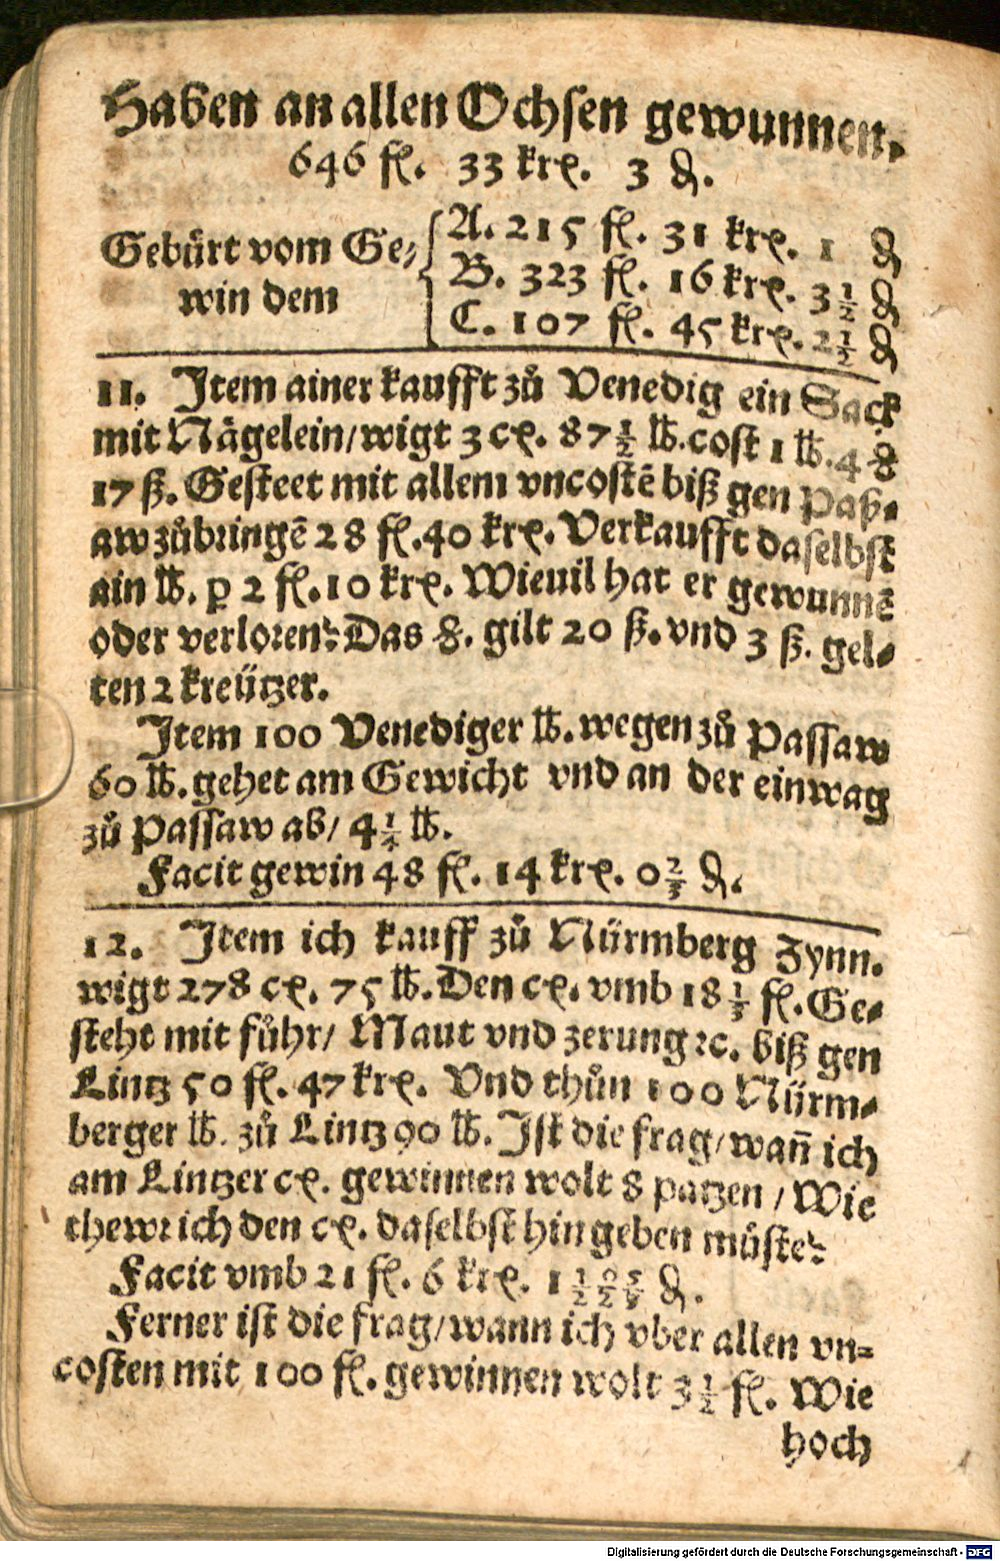 Haben an allen Ochsen gewunnen.
646 fl. 33 krꝛ. 3 ₰.
Gebürt vom Ge⸗
win dem
A. 215 fl. 31 krꝛ. 1 ₰
B. 323 fl. 16 krꝛ. 3 1/2 ₰
C. 107 fl. 45 krꝛ. 2 1/2 ₰
11. Item ainer kaufft zů Venedig ein Sack
mit Nägelein/wigt 3 cꝛ. 87 1/2 ℔. cost 1 ℔. 4 ꝸ
17 ß. Gesteet mit allem vncostē biß gen Paß⸗
aw zůbringē 28 fl. 40 krꝛ. Verkaufft daselbst
ain ℔. ꝑ 2 fl. 10 krꝛ. Wieuil hat er gewunnē
oder verloren? Das ꝸ. gilt 20 ß. vnd 3 ß. gel⸗
ten 2 kreützer.
Item 100 Venediger ℔. wegen zů Passaw
60 ℔. gehet am Gewicht vnd an der einwag
zů Passaw ab/ 4 1/4 ℔.
Facit gewin 48 fl. 14 krꝛ. 0 2/3 ₰.
12. Item ich kauff zů Nürmberg Zynn.
wigt 278 cꝛ. 75 ℔. Den cꝛ. vmb 18 1/3 fl. Ge⸗
steht mit fůhr/ Maut vnd zerung ꝛc. biß gen
Lintz 50 fl. 47 krꝛ. Vnd thůn 100 Nürm⸗
berger ℔. zů Lintz 90 ℔. Ist die frag/wañ ich
am Lintzer cꝛ. gewinnen wolt 8 patzen / Wie
thewr ich den cꝛ. daselbst hin geben müste?
Facit vmb 21 fl. 6 krꝛ. ₰.
Ferner ist die frag/wann ich vber allen vn⸗
costen mit 100 fl. gewinnen wolt 3 1/2 fl. Wie
hoch
Digitalisierung gefördert durch die Deutsche Forschungsgemeinschaft - DFG